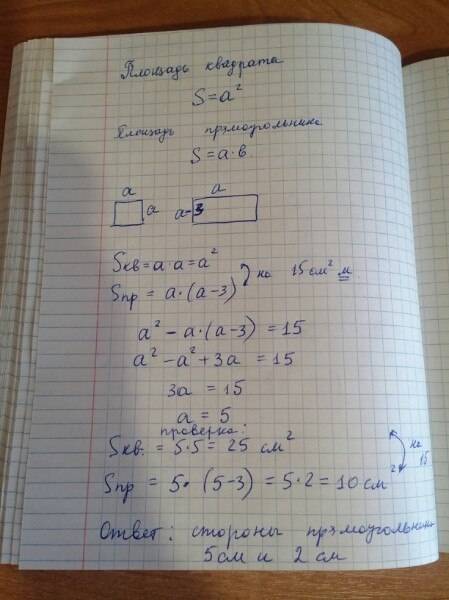 Площадь квадрата
S = a²
Площадь прямоугольника
S = a·в
a a
a a-3
Sкв = a·a = a²
на 15 см² м
Sпр = a·(a-3)
a² - a·(a-3) = 15
a² - a² + 3a = 15
3a = 15
a = 5
проверка:
Sкв. = 5·5 = 25 см²
на 15
Sпр = 5·(5-3) = 5·2 = 10 см²
Ответ: стороны прямоугольника
5 см и 2 см